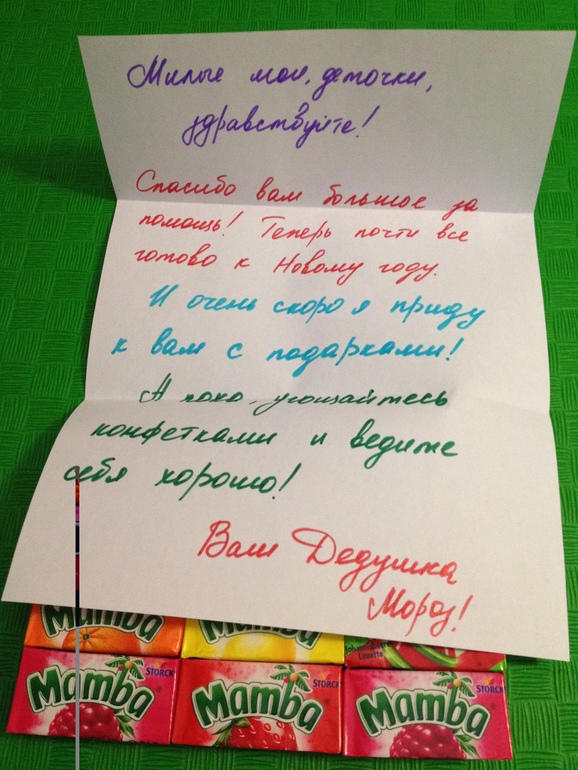 Милые мои, деточки,
здравствуйте!
Спасибо вам большое за
помощь! Теперь почти все
готово к Новому году.
И очень скоро я приду
к вам с подарками!
А пока, угощайтесь
конфетками и ведите
себя хорошо!
Ваш Дедушка
Мороз!
Mamba
Mamba
Limette
Mamba STORCK
Mamba STORCK
Mamba STORCK